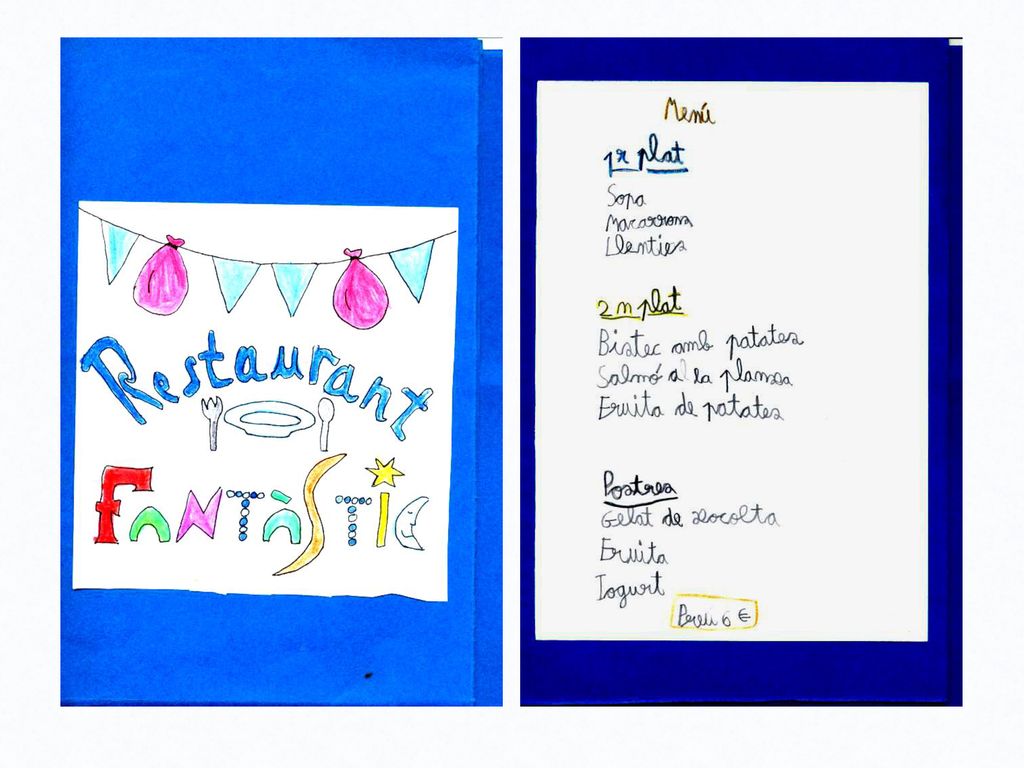 Restaurant
FANTÀSTIC
Menú
1r plat
Sopa
Macarrons
Llenties
2n plat
Bistec amb patates
Salmó a la planxa
Fruita de patates
Postres
Gelat de xocolta
Fruita
Iogurt
Preu 6 €